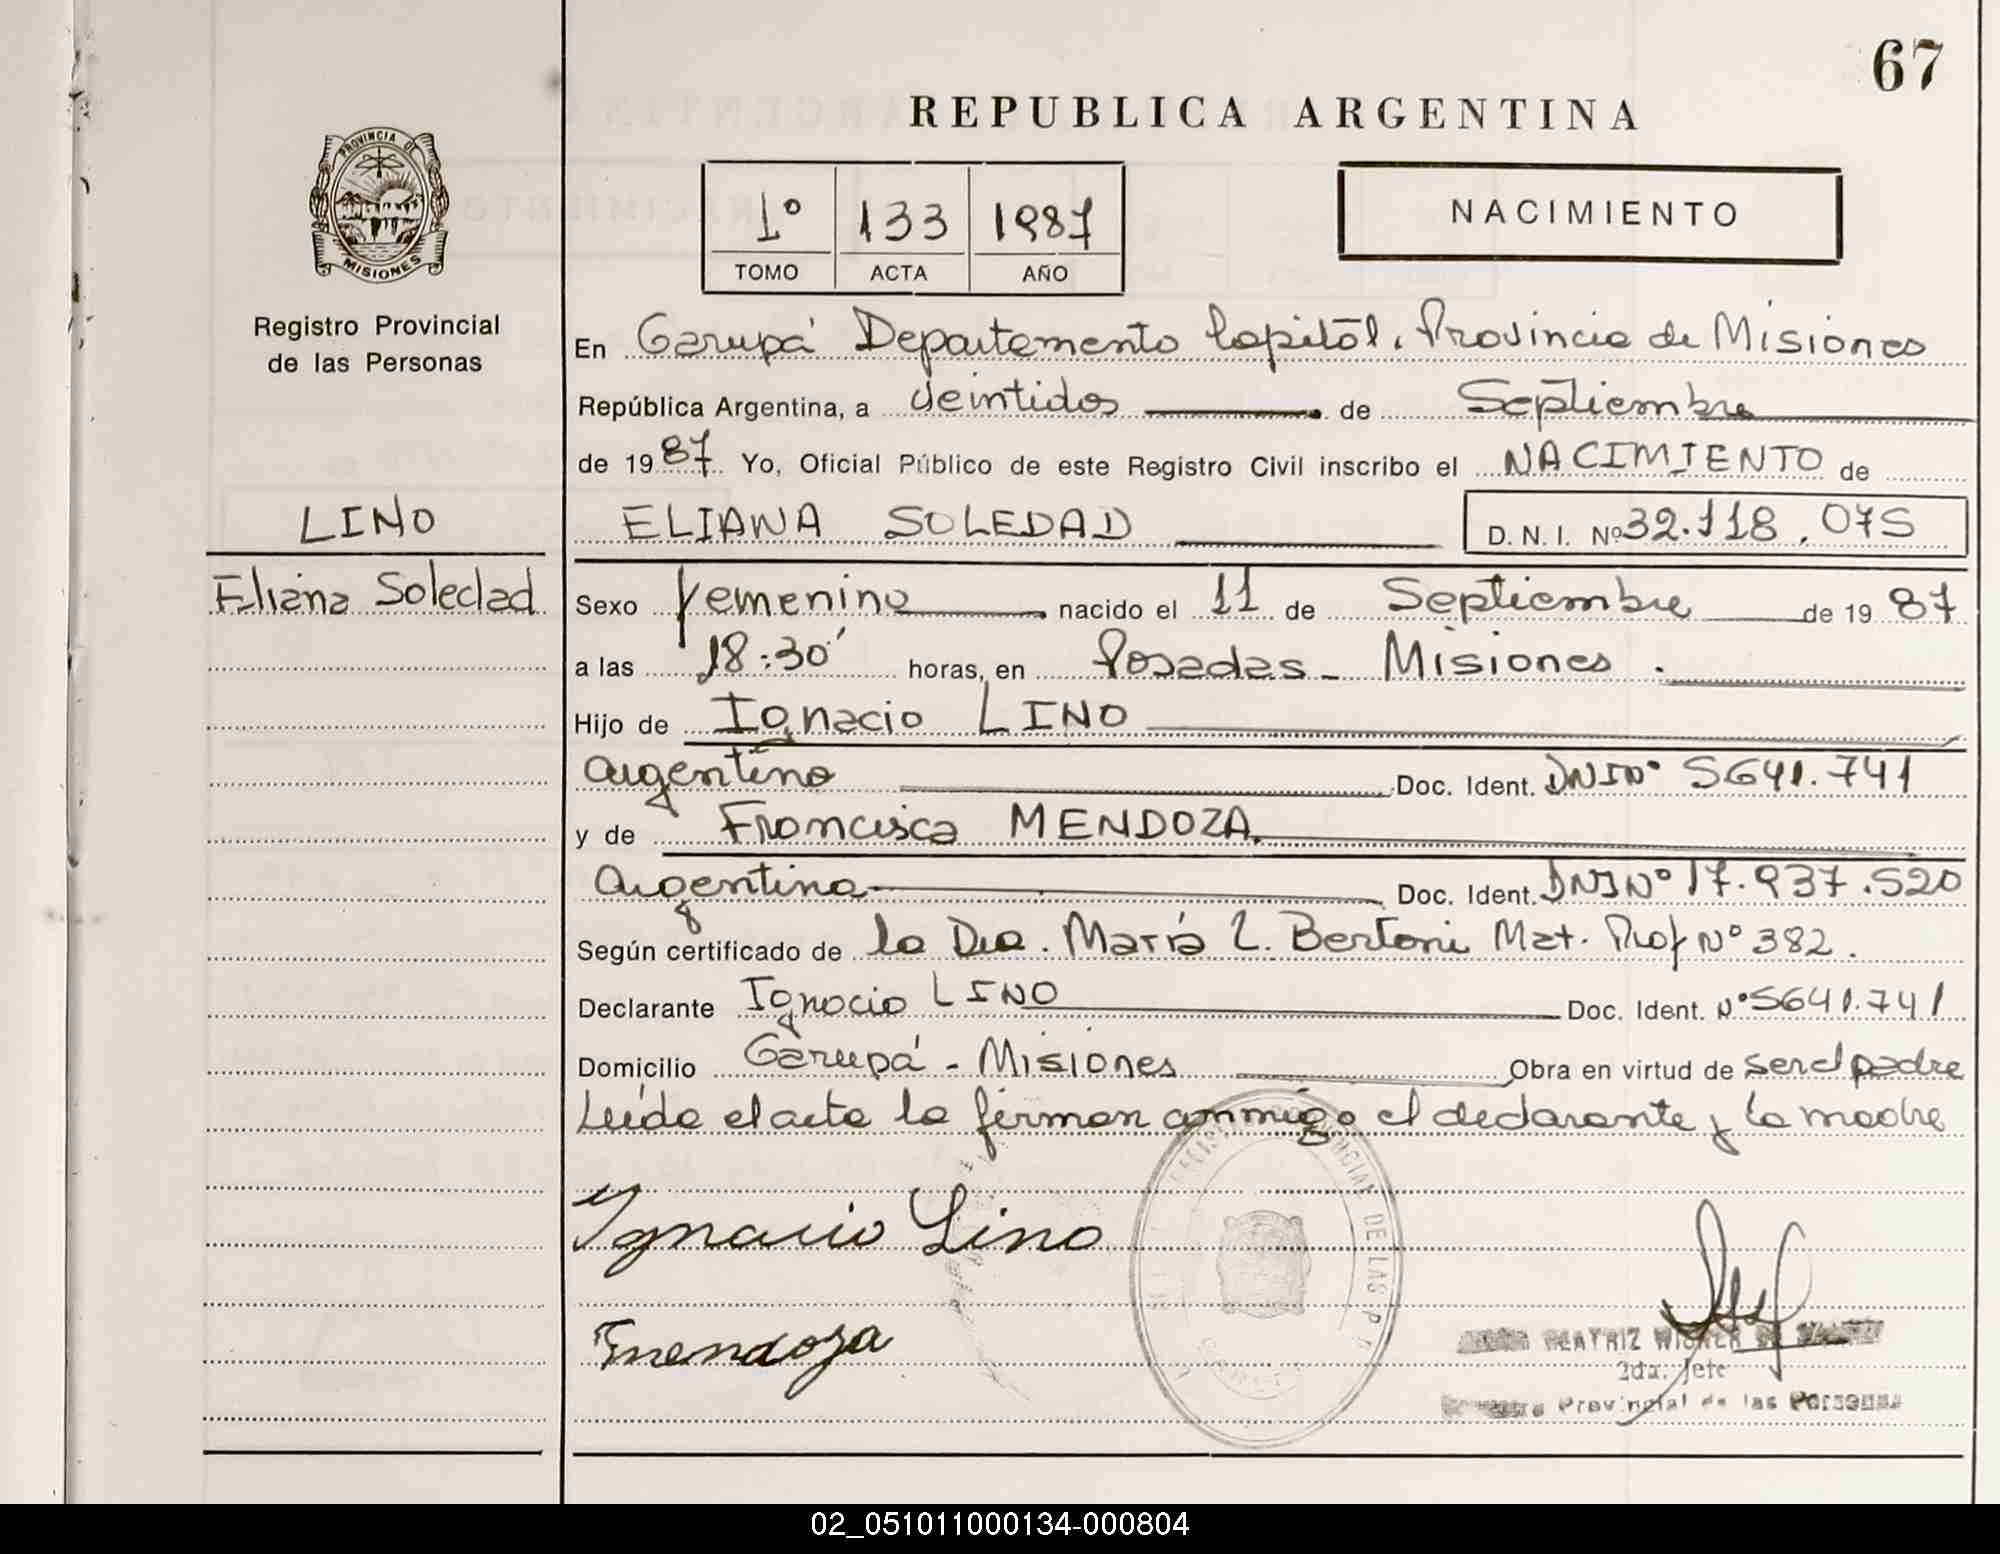 67
REPUBLICA ARGENTINA
PROVINCIA DE
MISIONES
1º 133 1987
TOMO ACTA AÑO
NACIMIENTO
Registro Provincial
de las Personas
En Garupá Departamento Capital, Provincia de Misiones
República Argentina, a veintidos de Septiembre
de 1987 Yo, Oficial Público de este Registro Civil inscribo el NACIMIENTO de
LINO
ELIANA SOLEDAD D. N. I. Nº 32.118.075
Eliana Soledad
Sexo femenino nacido el 11 de Septiembre de 1987
a las 18:30' horas, en Posadas - Misiones.
Hijo de Ignacio LINO
argentino Doc. Ident. DNI Nº 5641.741
y de Francisca MENDOZA.
argentina Doc. Ident. DNI Nº 17.937.520
Según certificado de la Dra. María L. Bertoni Mat. Prof Nº 382.
Declarante Ignacio LINO Doc. Ident. Nº 5641.741
Domicilio Garupá - Misiones Obra en virtud de ser el padre
Leída el acta la firman conmigo el declarante y la madre
Ignacio Lino
DE LAS P
Fmendoza
BEATRIZ
2da. Jefe
Provincial de las Personas
02_051011000134-000804